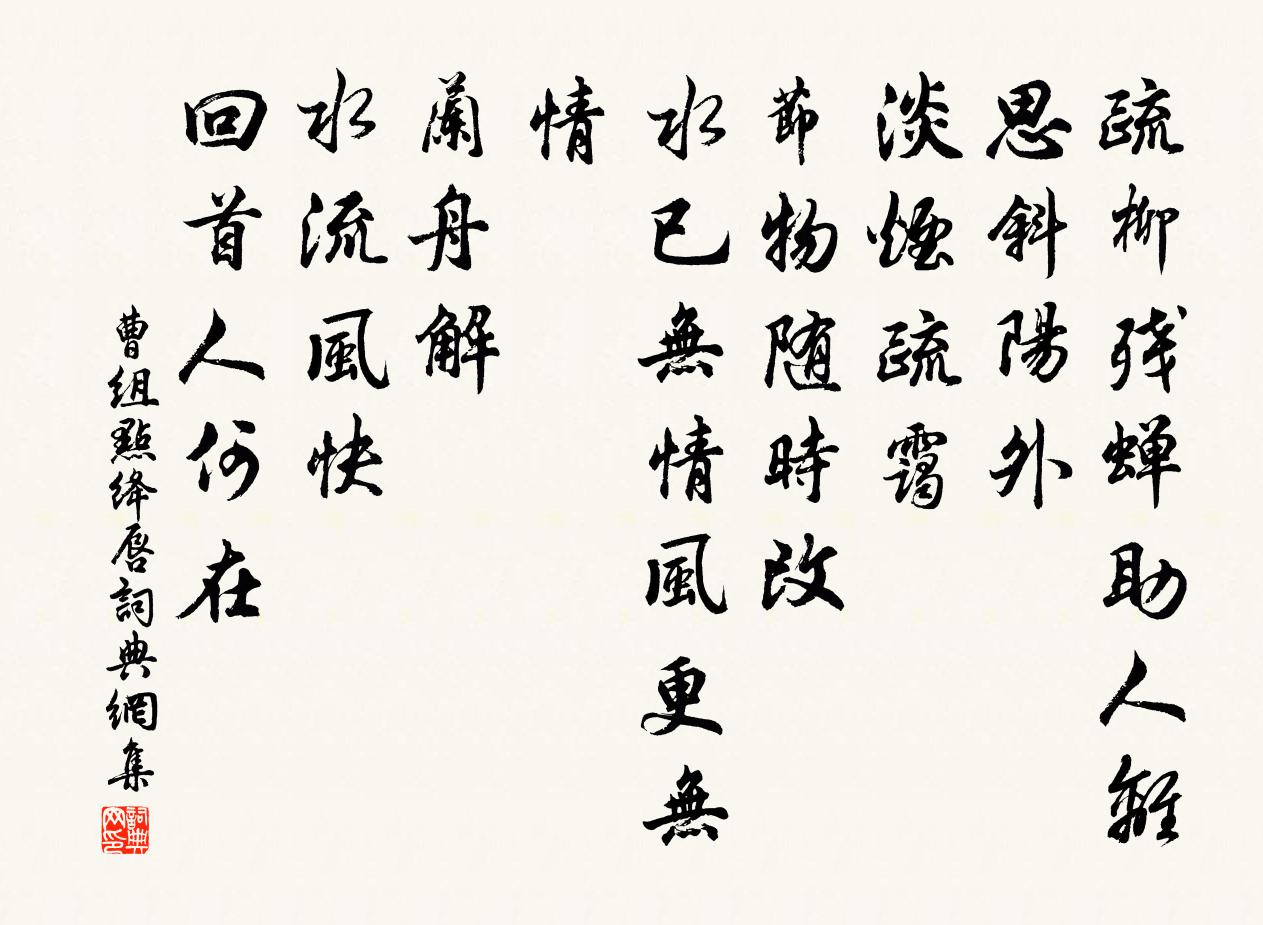 疏柳残蝉助人離
思斜陽外
淡煙疏靄
節物随時改
水已無情風更無
情
蘭舟解
水流風快
回首人何在
曹組點绛唇詞典網集
詞典网印